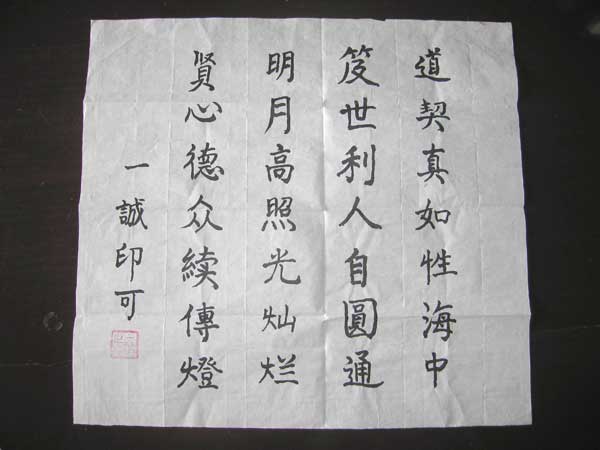 道契真如性海中
笈世利人自圓通
明月高照光灿烂
賢心德众續傳燈
一誠印可